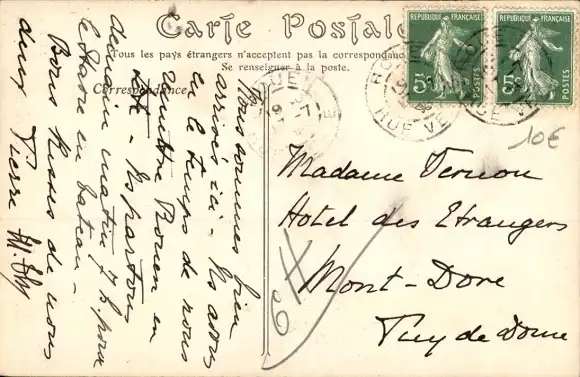 Carte Postale
Tous les pays étrangers n'acceptent pas la correspondance
Se renseigner à la poste.
Correspondance
RÉPUBLIQUE FRANÇAISE
5c
POSTES
RÉPUBLIQUE FRANÇAISE
5c
POSTES
10€
Nous sommes bien
arrivés ici - Ns avons
eu le temps de nous
Rouen en
- Ns partons
demain matin 7h pour
le Havre en bateau -
Bons baisers de nous
deux Pierre
Madame Vernon
Hotel des Etrangers
Mont-Dore
Puy de Dome